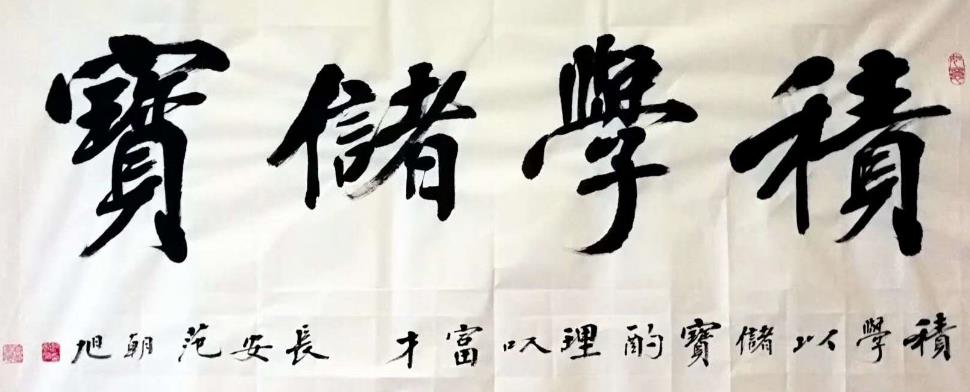 積學儲寶
積學以儲寶酌理以富才 長安范朝旭